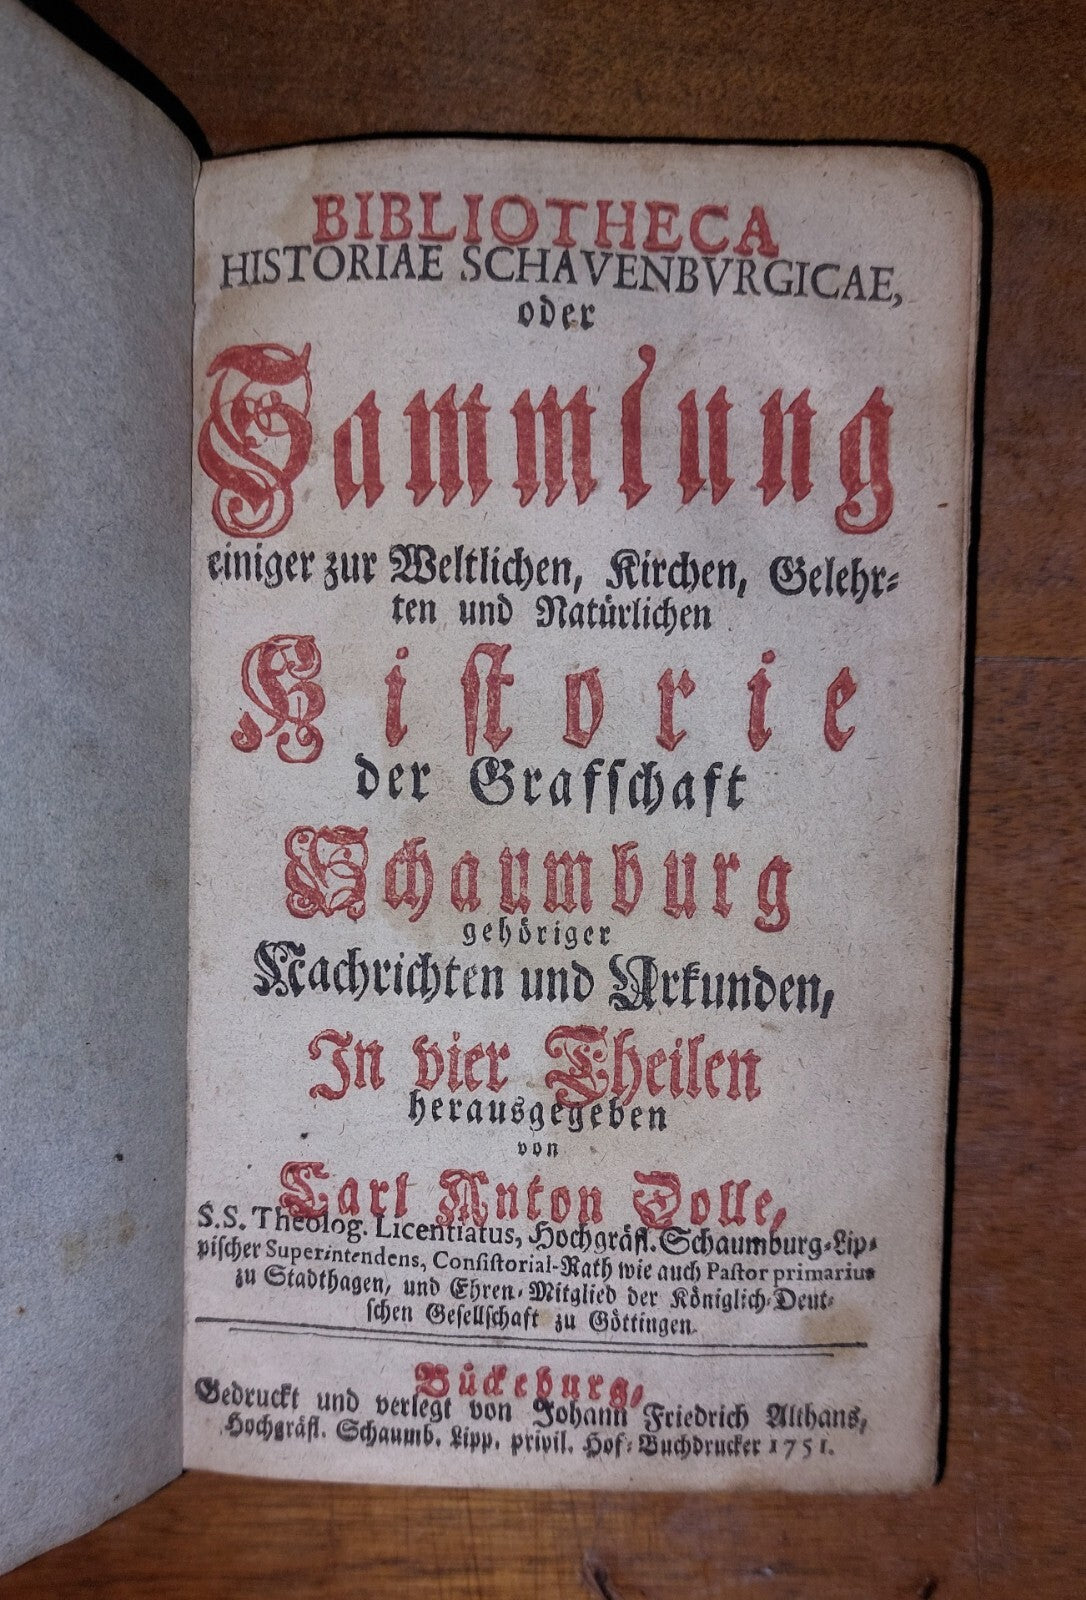 BIBLIOTHECA
HISTORIAE SCHAVENBVRGICAE,
oder
Sammlung
einiger zur Weltlichen, Kirchen, Gelehr-
ten und Natürlichen
Historie
der Grafschaft
Schaumburg
gehöriger
Nachrichten und Urkunden,
In vier Theilen
herausgegeben
von
Carl Anton Dolle,
S.S. Theolog. Licentiatus, Hochgräfl. Schaumburg-Lip-
pischer Superintendens, Consistorial-Rath wie auch Pastor primarius
zu Stadthagen, und Ehren-Mitglied der Königlich-Deut-
schen Gesellschaft zu Göttingen.
Bückeburg,
Gedruckt und verlegt von Johann Friedrich Althans,
Hochgräfl. Schaumb. Lipp. privil. Hof-Buchdrucker 1751.